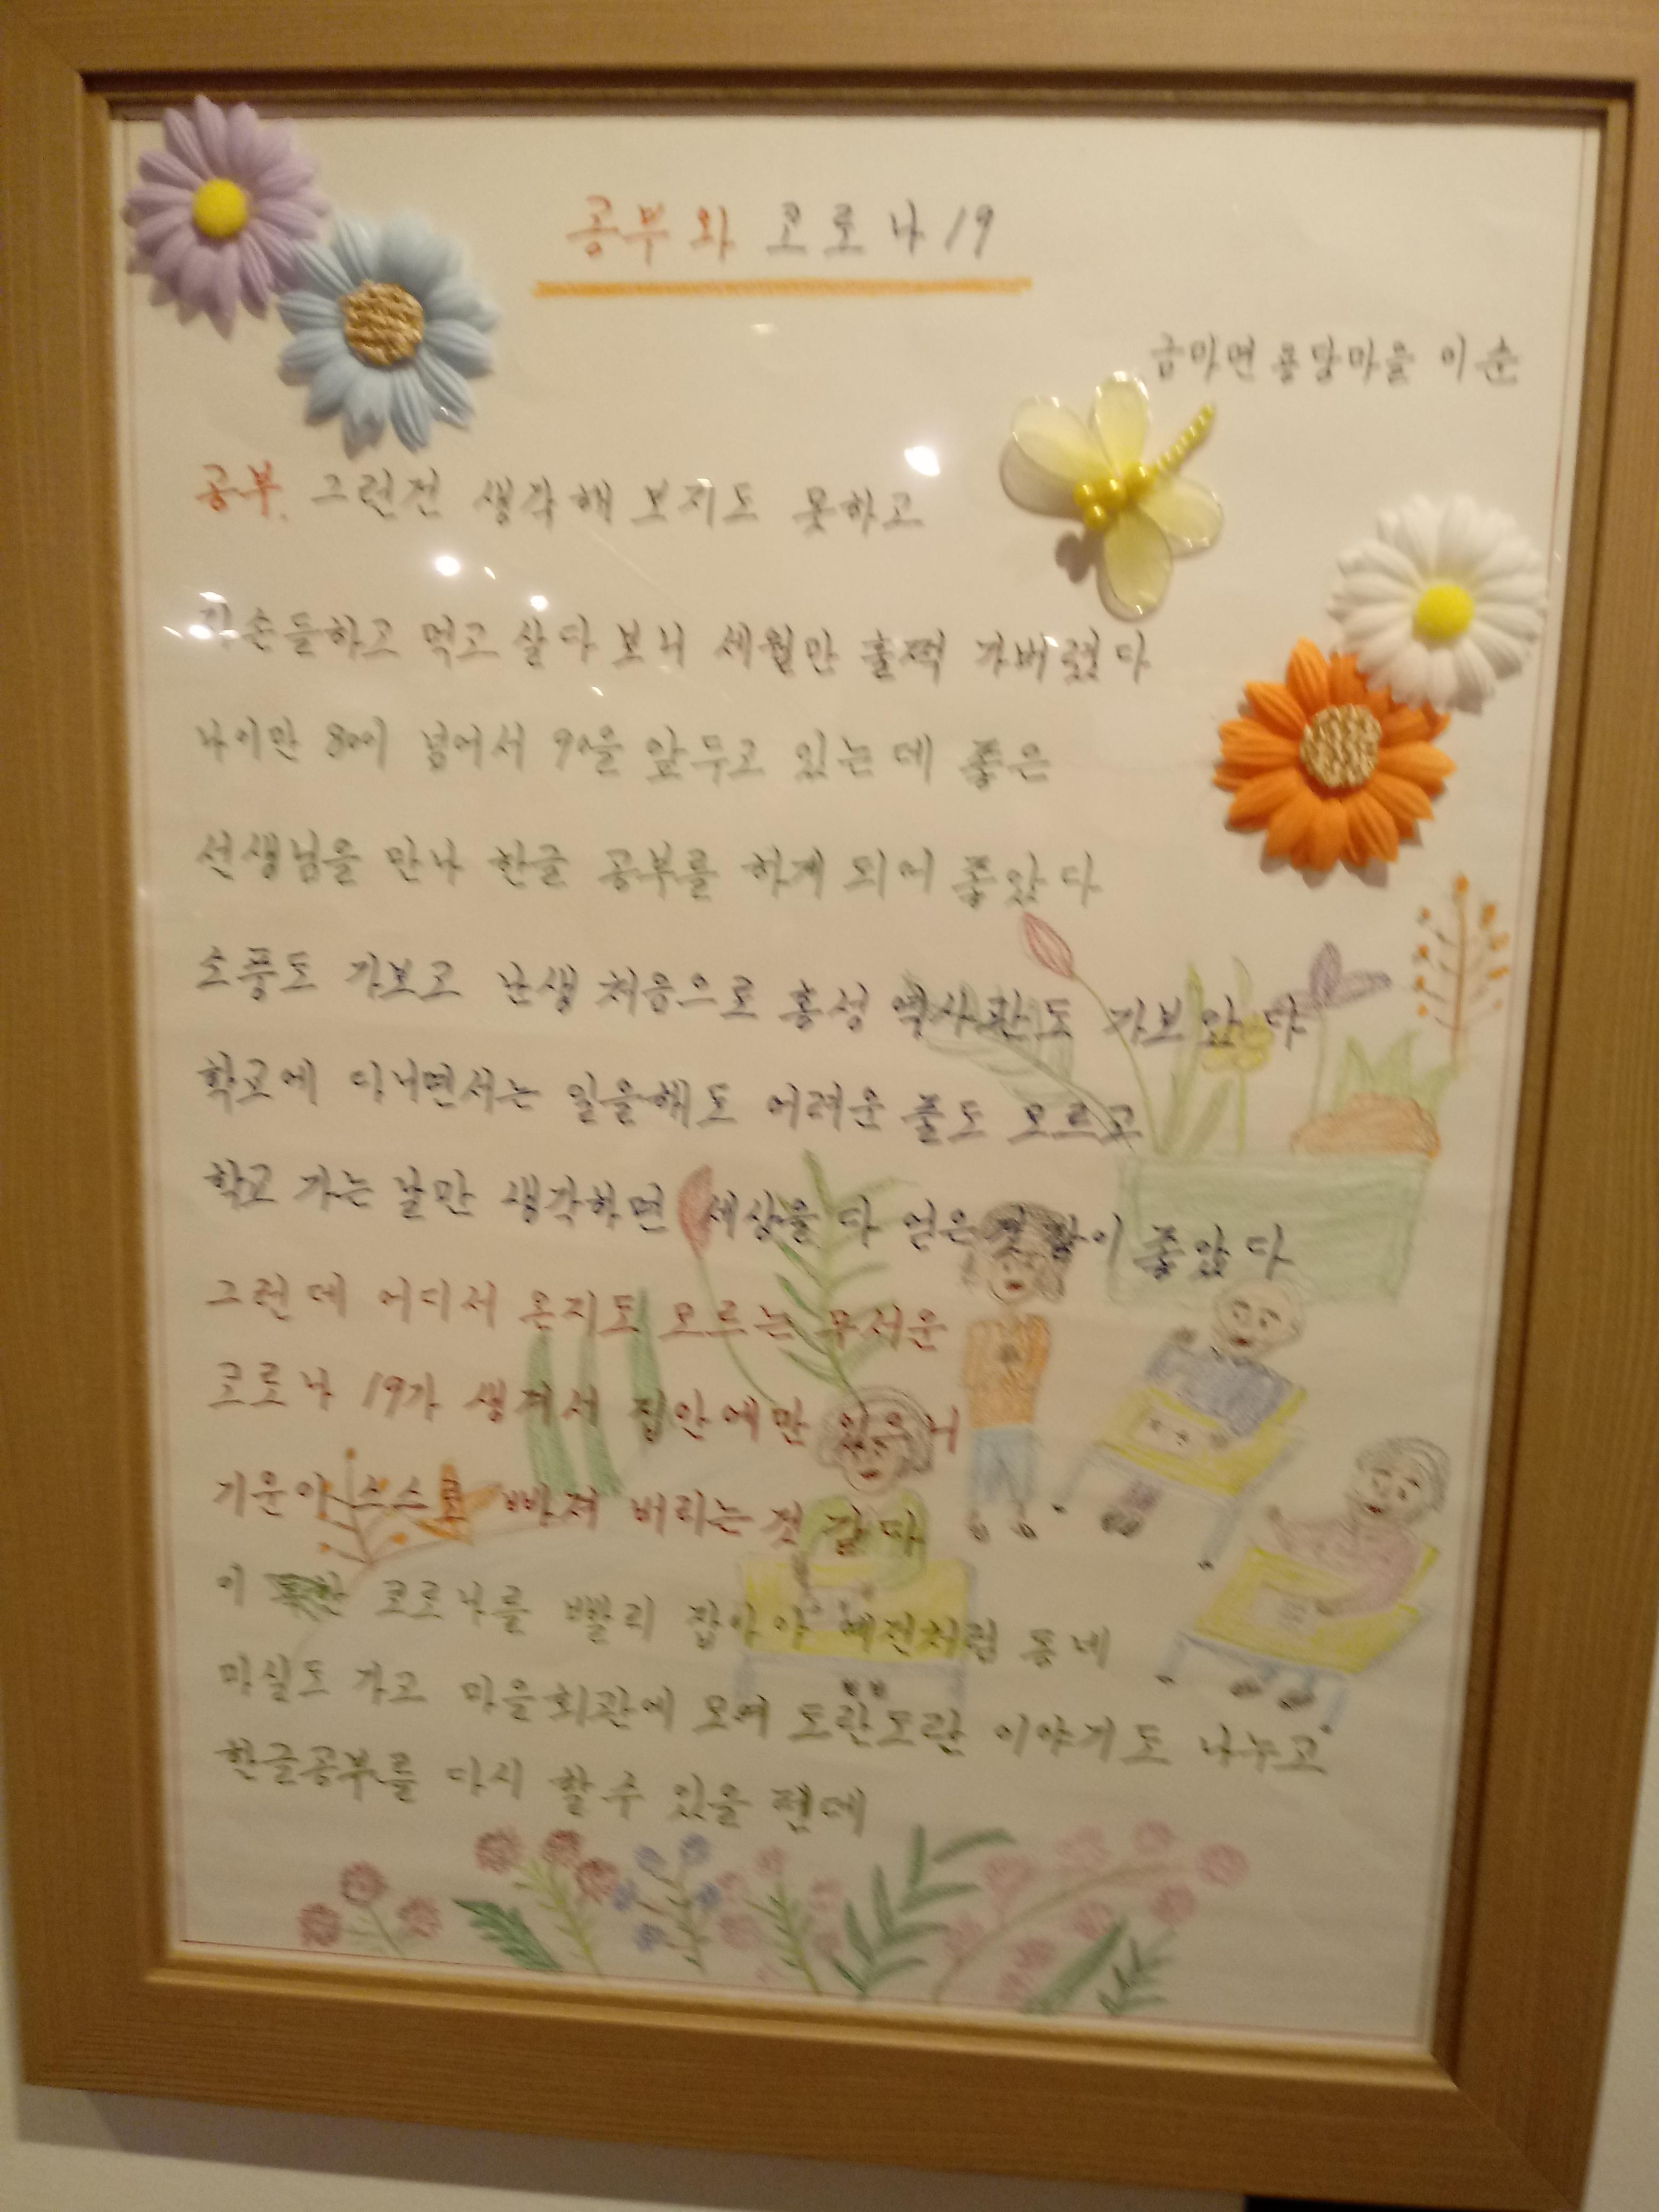 공부와 코로나19
금마면 용당마을 이순
공부. 그런건 생각해 보지도 못하고
자손들하고 먹고 살다 보니 세월만 훌쩍 가버렸다
나이만 80이 넘어서 90을 앞두고 있는데 좋은
선생님을 만나 한글 공부를 하게 되어 좋았다
소풍도 가보고 난생 처음으로 홍성 역사관도 가보았다
학교에 다니면서는 일을해도 어려운 줄도 모르고
학교 가는 날만 생각하면 세상을 다 얻은 것 같이 좋았다
그런데 어디서 온지도 모르는 무서운
코로나 19가 생겨서 집안에만 있으니
기운이 스스로 빠져 버리는 것 같다
이 코로나를 빨리 잡아야 예전처럼 동네
마실도 가고 마을회관에 모여 도란도란 이야기도 나누고
한글공부를 다시 할수 있을 텐데